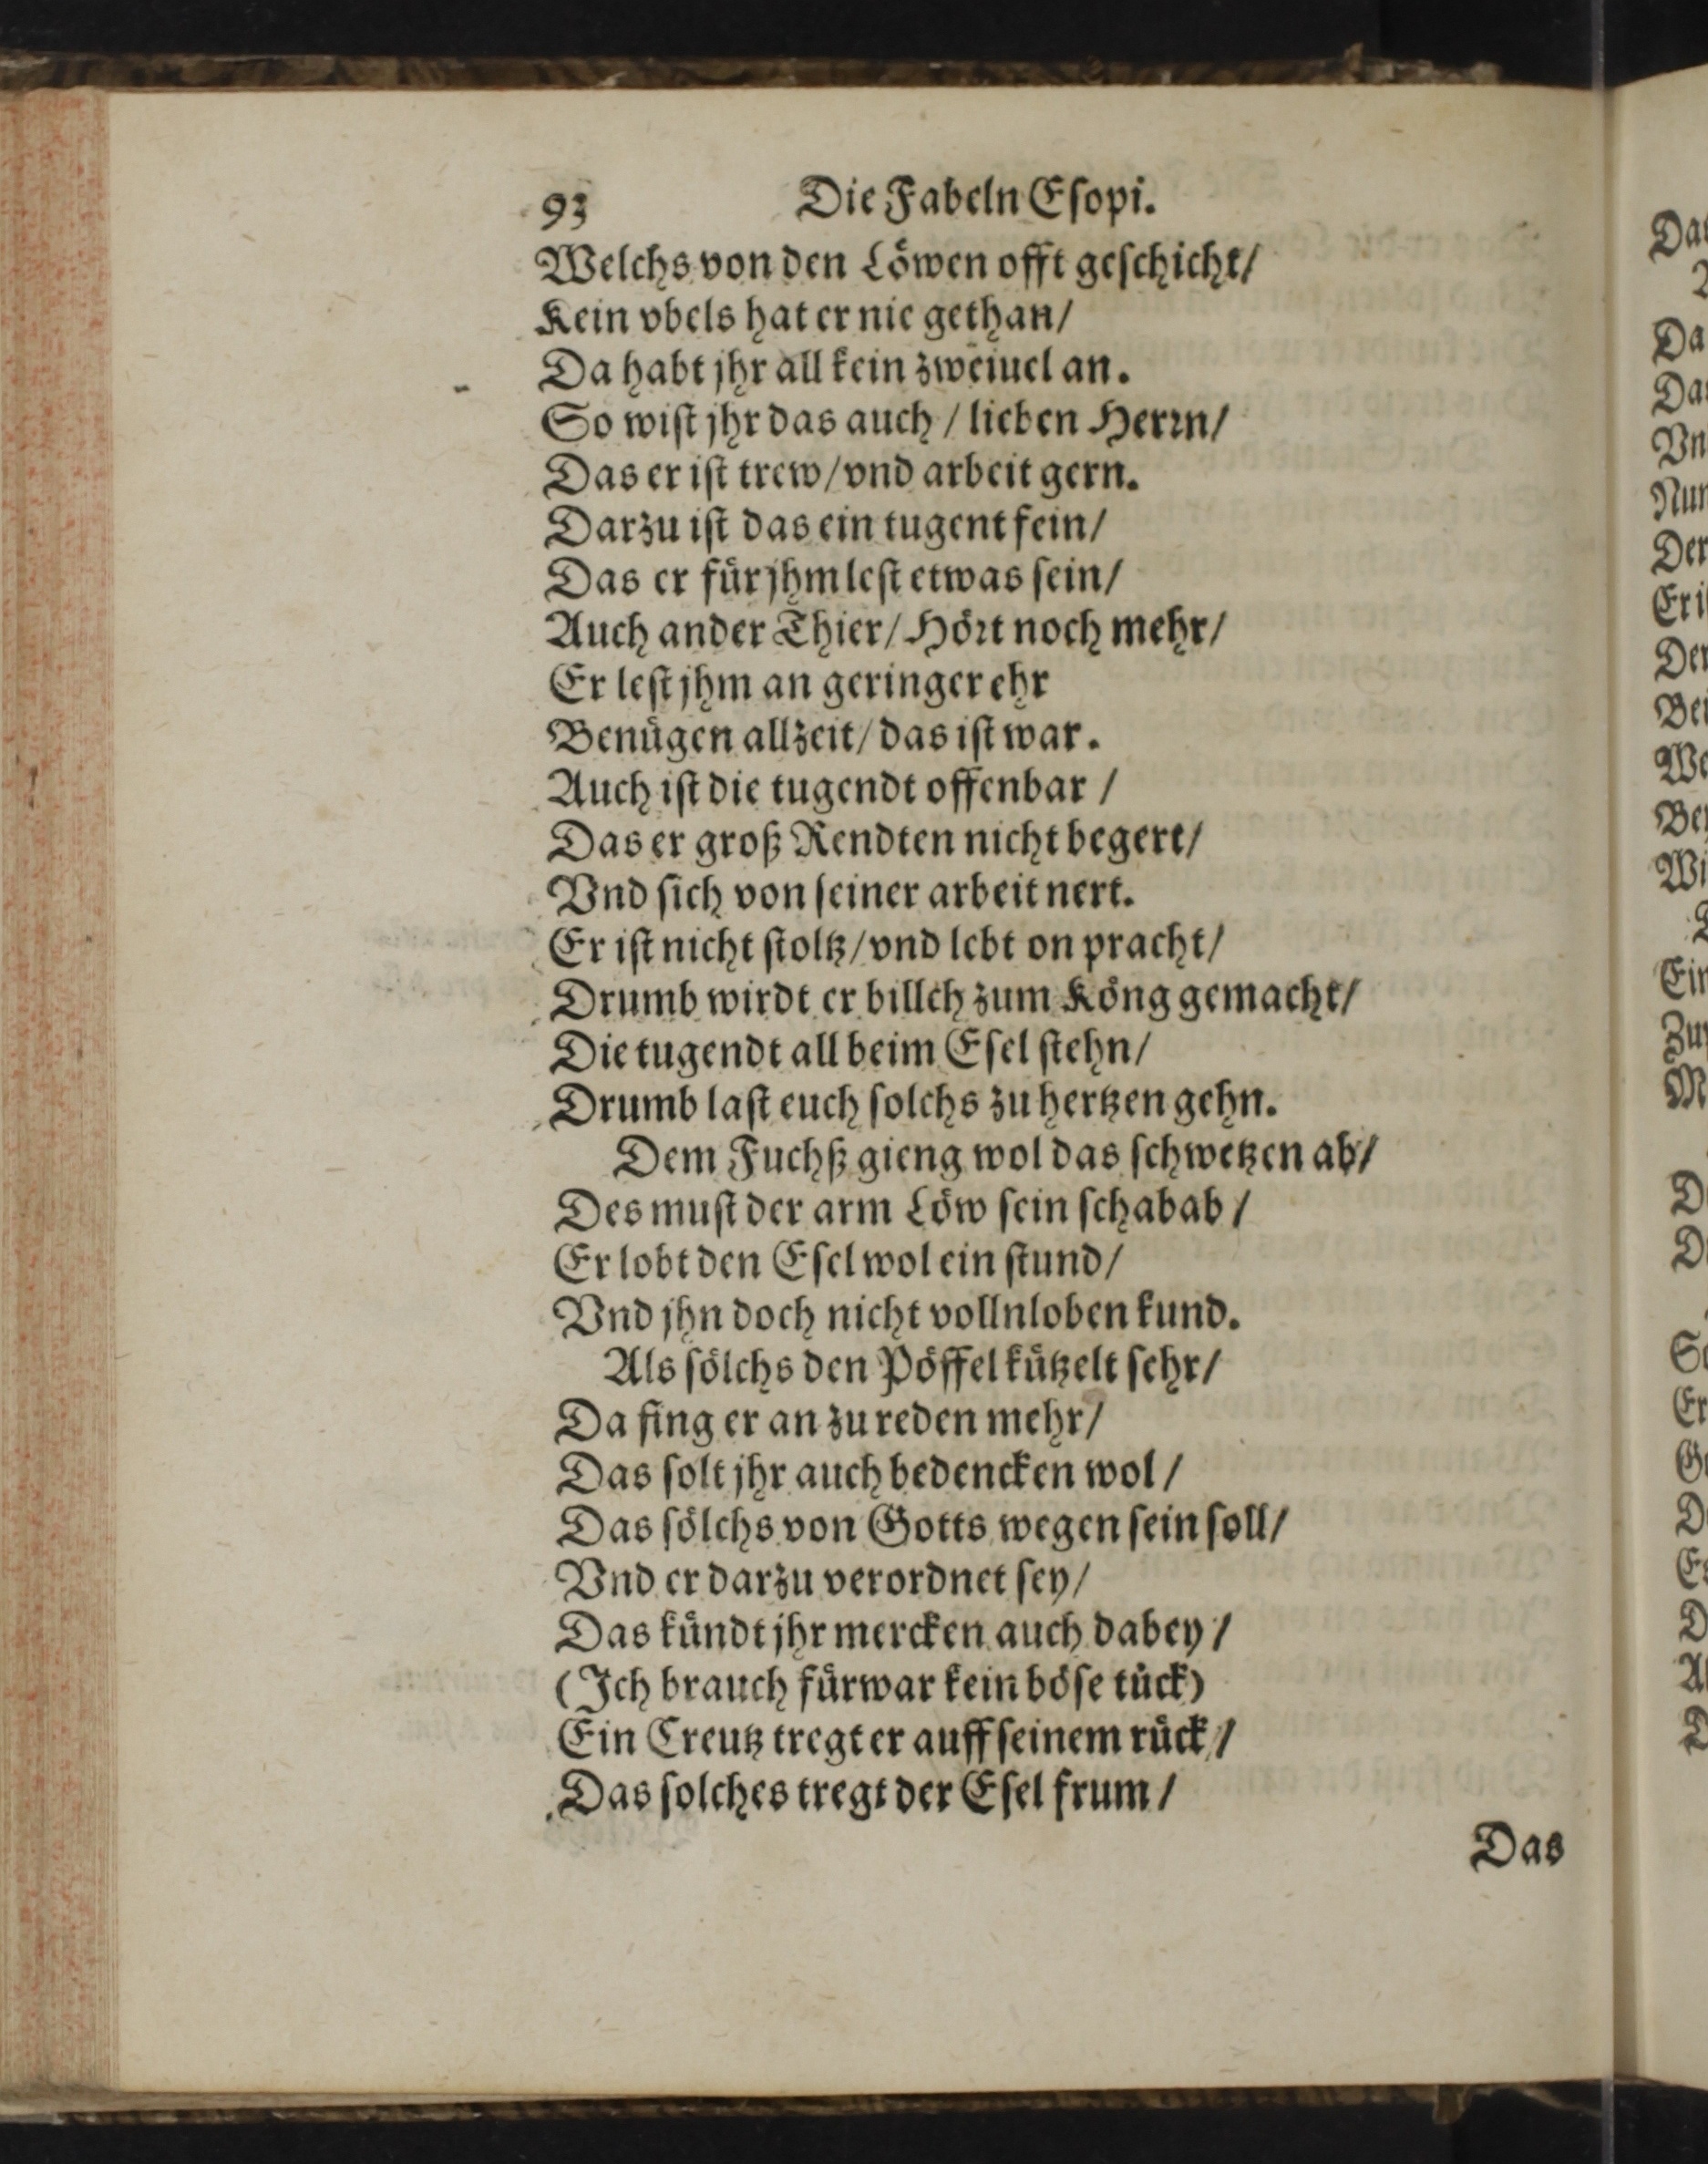 93 Die Fabeln Eſopi.
Welchs von den Löwen offt geſchicht/
Kein vbels hat er nie gethan/
Da habt jhr all kein zweiuel an.
So wiſt jhr das auch / lieben Herꝛn/
Das er iſt trew/vnd arbeit gern.
Darzu iſt das ein tugent fein/
Das er für jhm leſt etwas ſein/
Auch ander Thier/Höꝛt noch mehr/
Er leſt jhm an geringer ehr
Benügen allzeit/das iſt war.
Auch iſt die tugendt offenbar /
Das er groß Rendten nicht begert/
Vnd ſich von ſeiner arbeit nert.
Er iſt nicht ſtoltz/vnd lebt on pracht/
Drumb wirdt er billch zum Köng gemacht/
Die tugendt all beim Eſel ſtehn/
Drumb laſt euch ſolchs zu hertzen gehn.
Dem Fuchß gieng wol das ſchwetzen ab/
Des muſt der arm Löw ſein ſchabab /
Er lobt den Eſel wol ein ſtund/
Vnd jhn doch nicht vollnloben kund.
Als ſölchs den Pöffel kützelt ſehr/
Da fing er an zu reden mehr/
Das ſolt jhr auch bedencken wol /
Das ſölchs von Gotts wegen ſein ſoll/
Vnd er darzu verordnet ſey/
Das kündt jhr mercken auch dabey /
(Ich brauch fürwar kein böſe tück)
Ein Creutz tregt er auff ſeinem rück /
Das ſolches tregt der Eſel frum /
Das